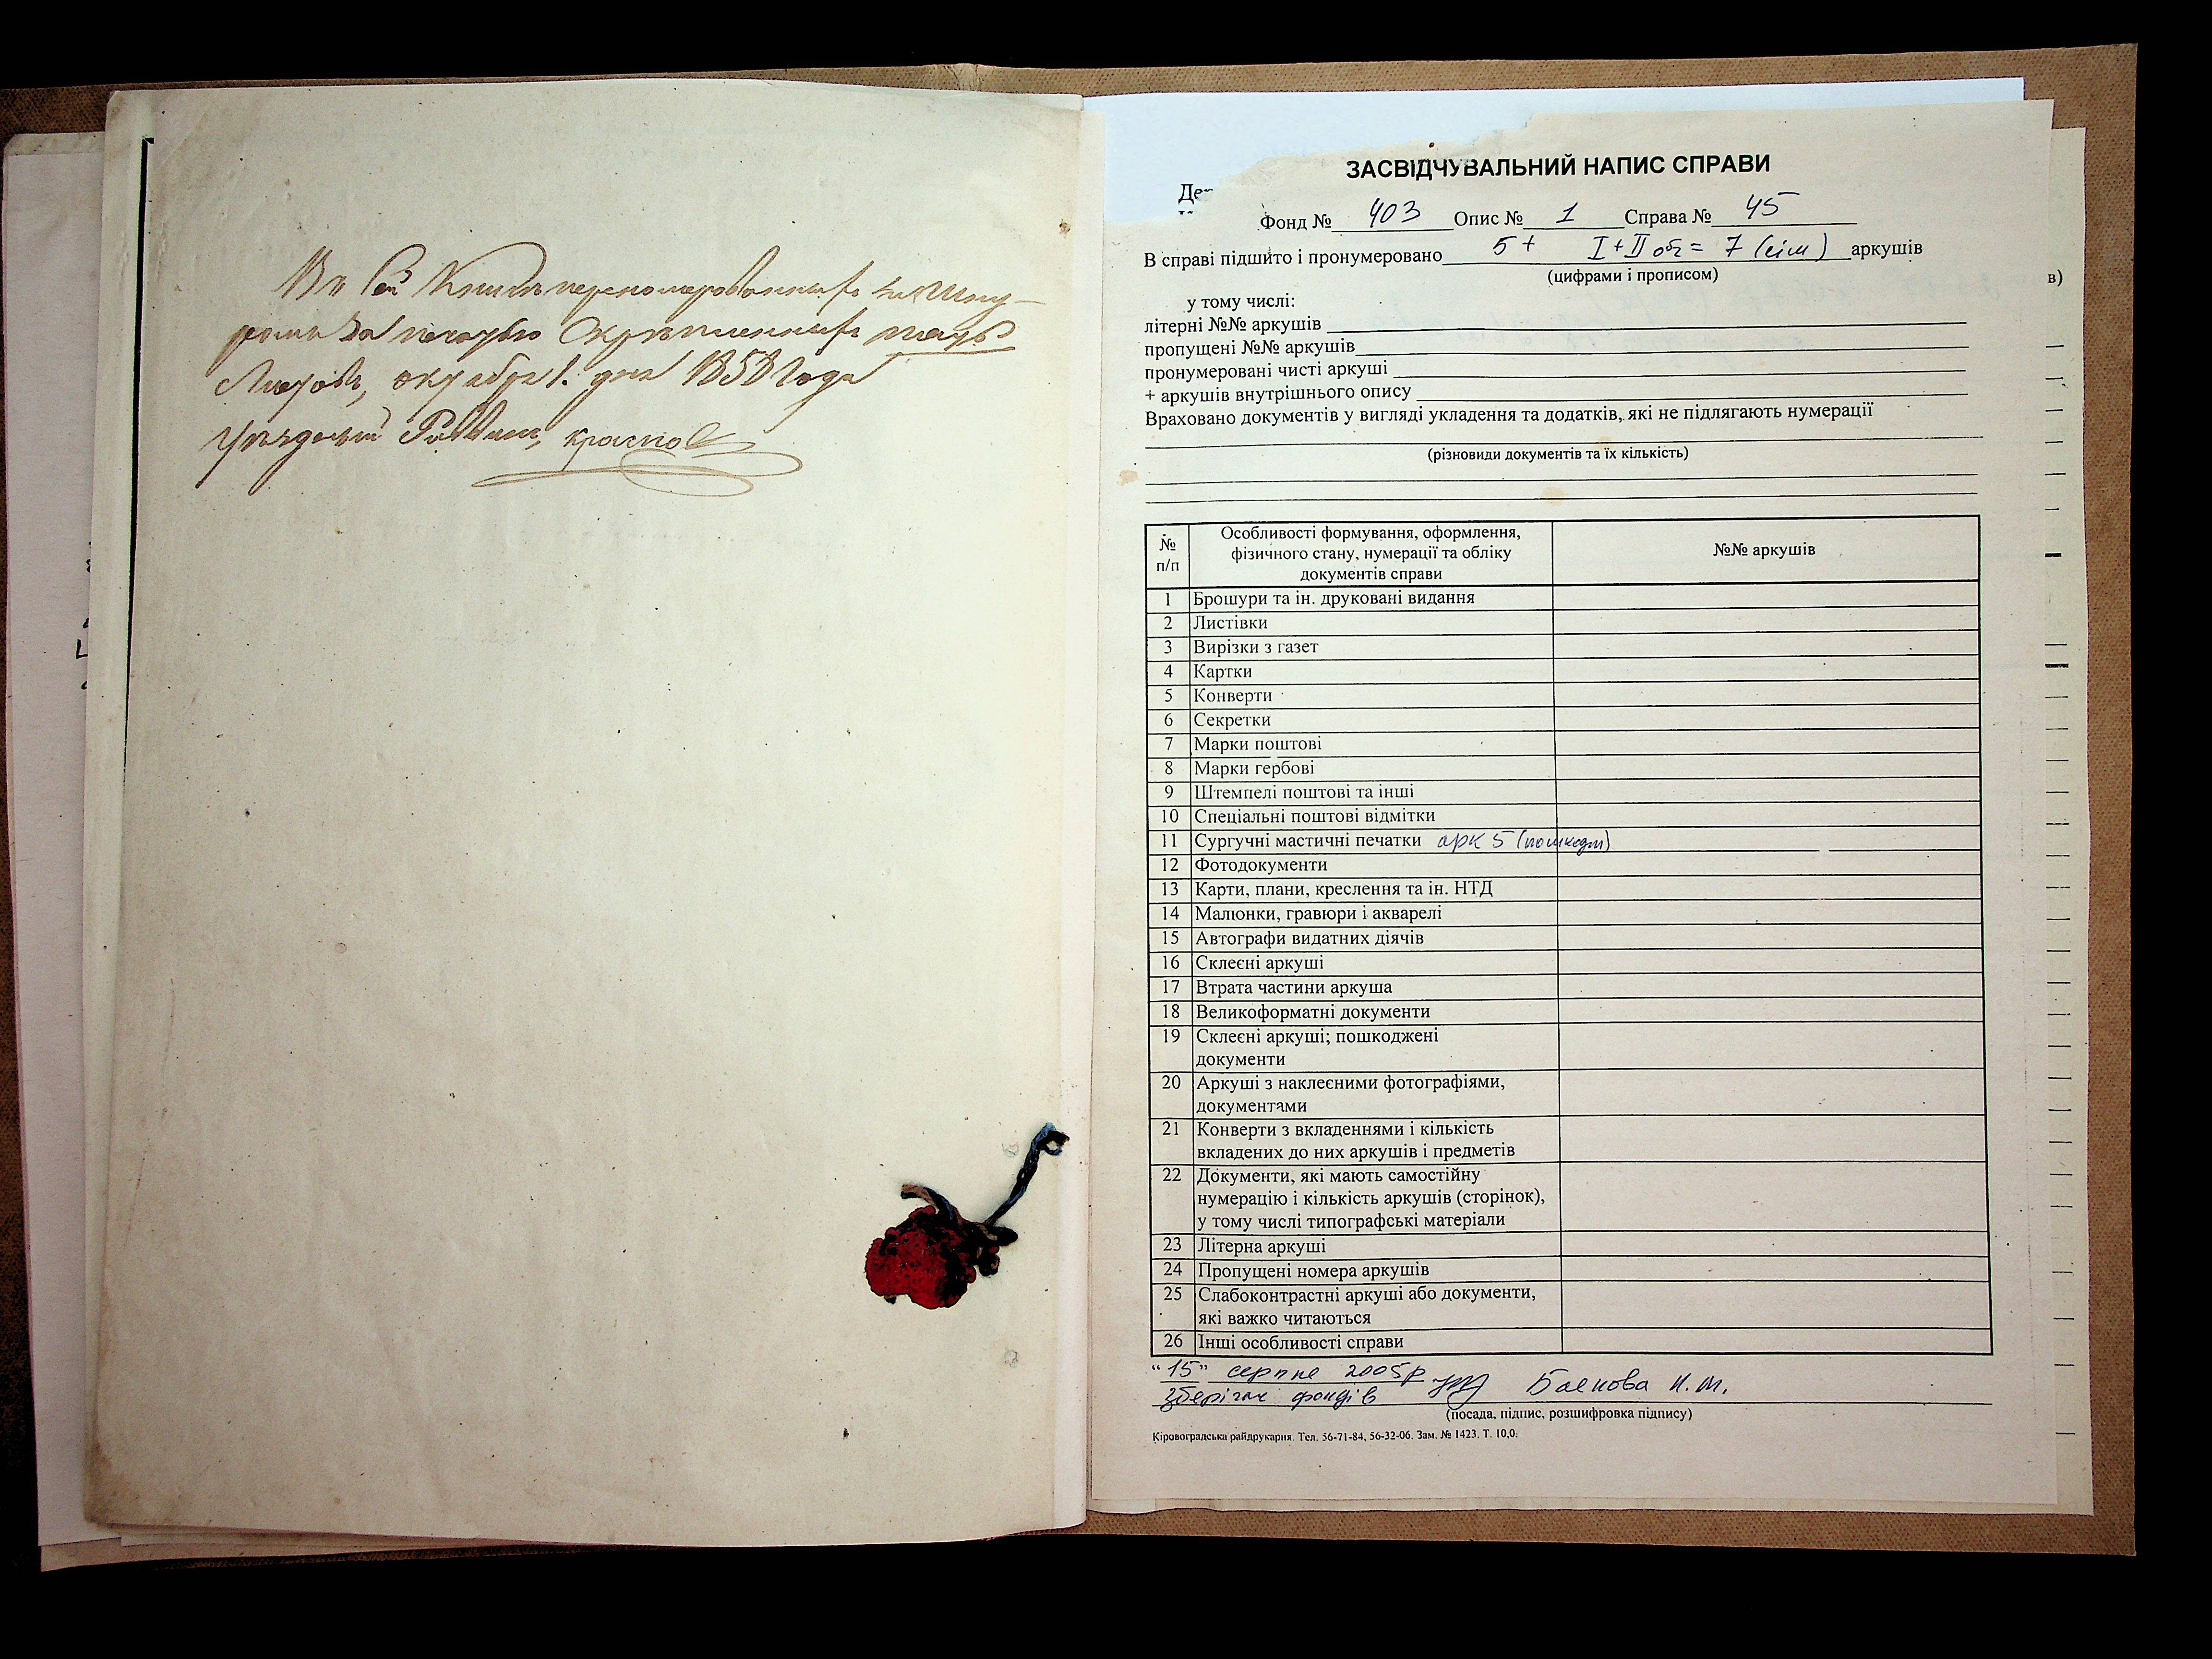 Въ Сей Книгѣ перенумерованныхъ и шну-
ромъ за печатью Скрѣпленныхъ пять
Листовъ, октября 1. дня 1858 года
Уѣздный Раввинъ,
ЗАСВІДЧУВАЛЬНИЙ НАПИС СПРАВИ
Фонд № 403 Опис № 1 Справа № 45
В справі підшито і пронумеровано 5 + I + II об = 7 (сім) аркушів
(цифрами і прописом)
в)
у тому числі:
літерні №№ аркушів
пропущені №№ аркушів
пронумеровані чисті аркуші
+ аркушів внутрішнього опису
Враховано документів у вигляді укладення та додатків, які не підлягають нумерації
(різновиди документів та їх кількість)
№ п/п
Особливості формування, оформлення,
фізичного стану, нумерації та обліку
документів справи
№№ аркушів
1 Брошури та ін. друковані видання
2 Листівки
3 Вирізки з газет
4 Картки
5 Конверти
6 Секретки
7 Марки поштові
8 Марки гербові
9 Штемпелі поштові та інші
10 Спеціальні поштові відмітки
11 Сургучні мастичні печатки арк 5 (пошкодж)
12 Фотодокументи
13 Карти, плани, креслення та ін. НТД
14 Малюнки, гравюри і акварелі
15 Автографи видатних діячів
16 Склеєні аркуші
17 Втрата частини аркуша
18 Великоформатні документи
19 Склеєні аркуші; пошкоджені
документи
20 Аркуші з наклеєними фотографіями,
документами
21 Конверти з вкладеннями і кількість
вкладених до них аркушів і предметів
22 Документи, які мають самостійну
нумерацію і кількість аркушів (сторінок),
у тому числі типографські матеріали
23 Літерна аркуші
24 Пропущені номера аркушів
25 Слабоконтрастні аркуші або документи,
які важко читаються
26 Інші особливості справи
“15” серпня 2005р
Зберігач фондів Баєнова Н. М.
(посада, підпис, розшифровка підпису)
Кіровоградська райдрукарня. Тел. 56-71-84, 56-32-06. Зам. № 1423. Т. 10,0.